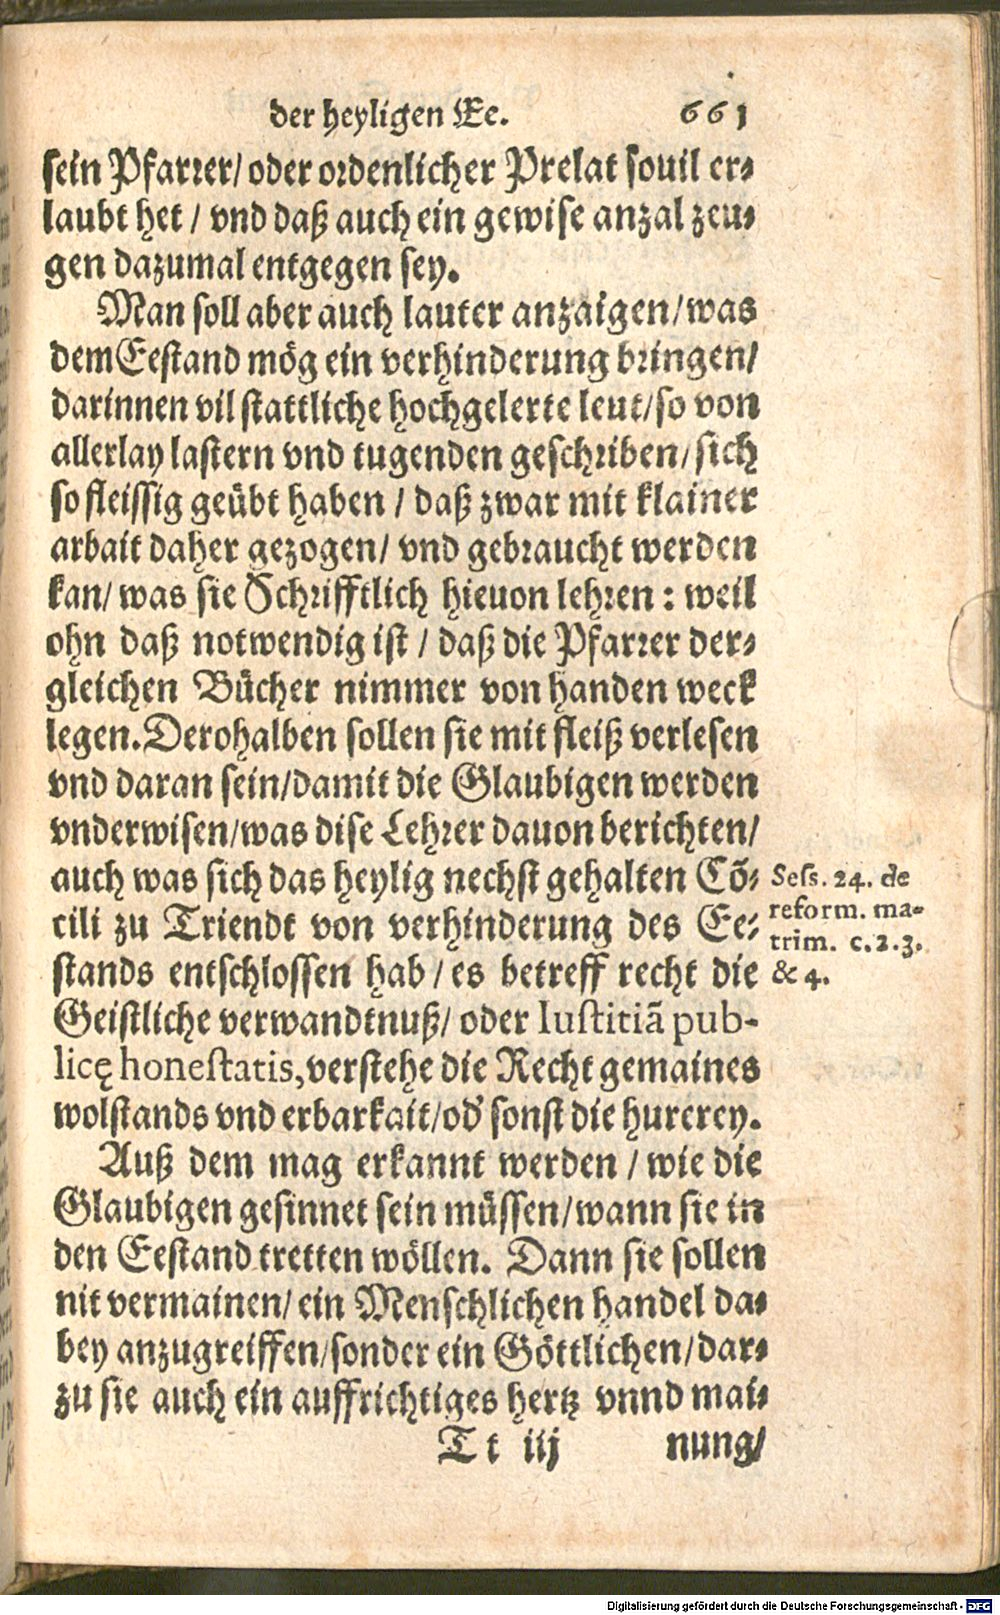 der heyligen Ee. 661
sein Pfarrer/ oder ordenlicher Prelat souil er⸗
laubt het / vnd daß auch ein gewise anzal zeu⸗
gen dazumal entgegen sey.
Man soll aber auch lauter anzaigen/was
dem Eestand mög ein verhinderung bringen/
darinnen vil stattliche hochgelerte leut/so von
allerlay lastern vnd tugenden geschriben/sich
so fleissig geübt haben / daß zwar mit klainer
arbait daher gezogen/ vnd gebraucht werden
kan/ was sie Schrifftlich hieuon lehren : weil
ohn daß notwendig ist / daß die Pfarrer der⸗
gleichen Bücher nimmer von handen weck
legen. Derohalben sollen sie mit fleiß verlesen
vnd daran sein/damit die Glaubigen werden
vnderwisen/was dise Lehrer dauon berichten/
auch was sich das heylig nechst gehalten Cõ⸗
cili zu Triendt von verhinderung des Ee⸗
stands entschlossen hab / es betreff recht die
Geistliche verwandtnuß/ oder Iustitiã pub-
licę honestatis, verstehe die Recht gemaines
wolstands vnd erbarkait/od' sonst die hurerey.
Auß dem mag erkannt werden / wie die
Glaubigen gesinnet sein müssen/wann sie in
den Eestand tretten wöllen. Dann sie sollen
nit vermainen/ ein Menschlichen handel da⸗
bey anzugreiffen/sonder ein Göttlichen/dar⸗
zu sie auch ein auffrichtiges hertz vnnd mai⸗
Tt iij nung/
Sess. 24. de
reform. ma-
trim. c.2.3.
& 4.
Digitalisierung gefördert durch die Deutsche Forschungsgemeinschaft - DFG